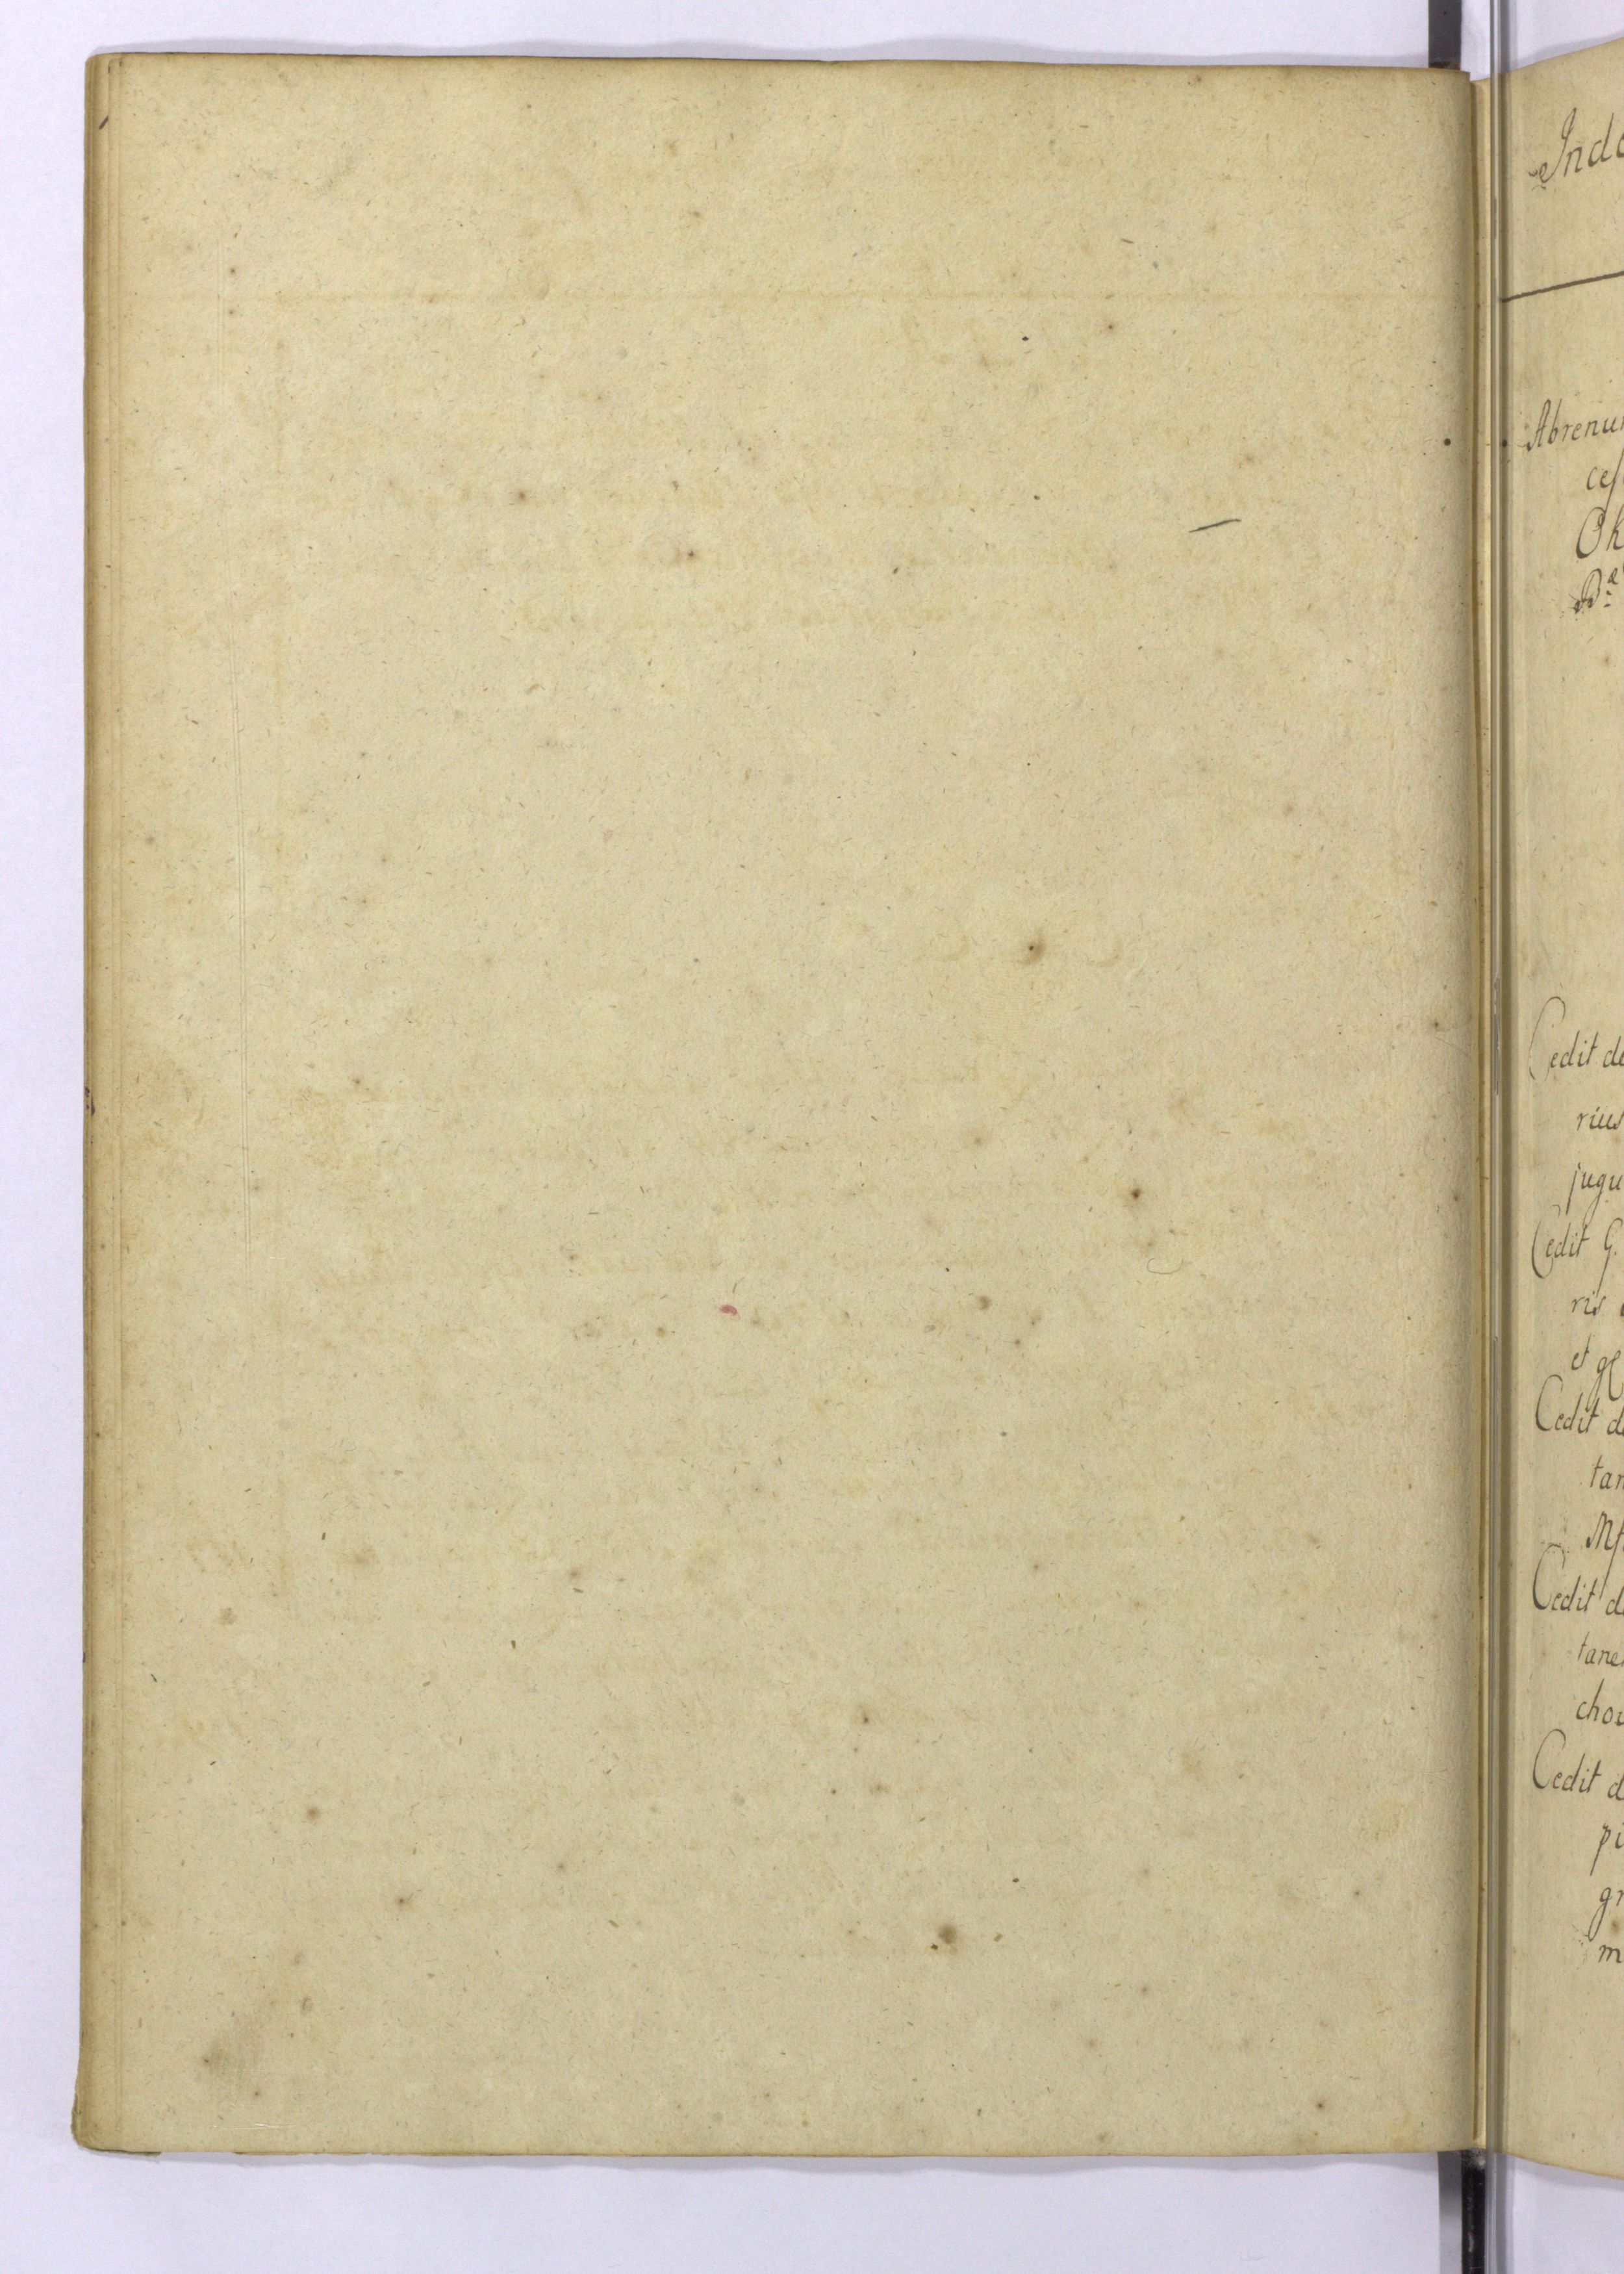 Inde
Abrenun
ces
Ok
Cedit de
rius
jugu
Cedit G.
ris
et
Cedit de
tan
Cedit de
tane
chou
Cedit d
pi
gr
m